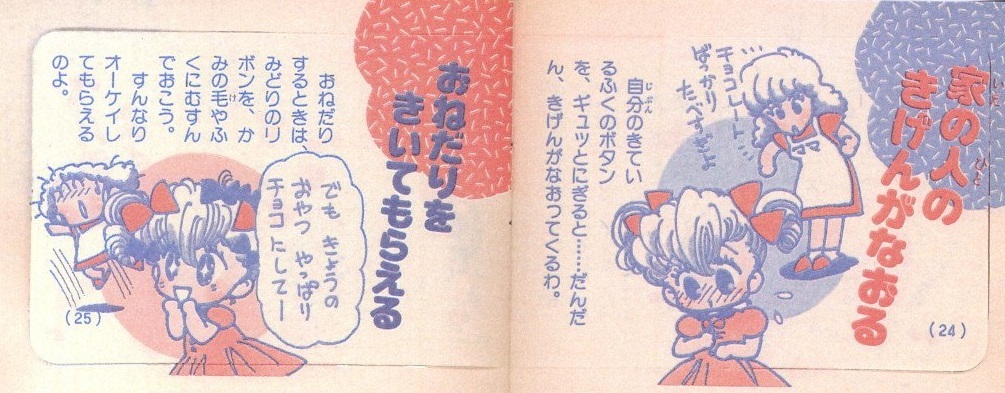 家の人の
きげんがなおる
いえ
ひと
…チョコレート…
ばっかり
たべすぎよ
自分のきてい
じぶん
るふくのボタン
を、ギュッとにぎると……だんだ
ん、きげんがなおってくるわ。
(24)
おねだりを
きいてもらえる
おねだり
するときは、
みどりのリ
ボンを、か
みの毛やふ
け
くにむすん
でおこう。
すんなり
オーケイし
てもらえる
のよ。
でも きょうの
おやつ やっぱり
チョコ にしてー
(25)